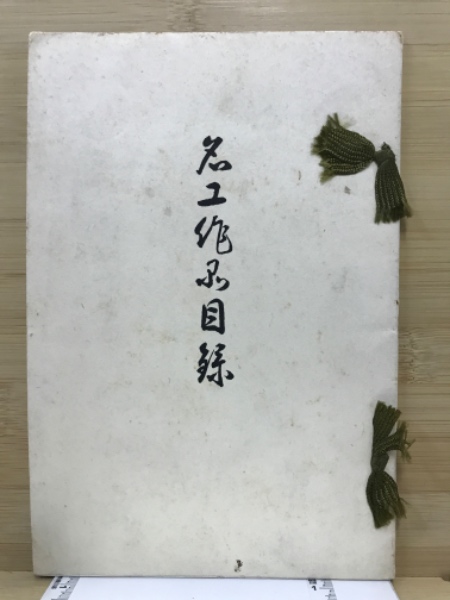 名工作品目録